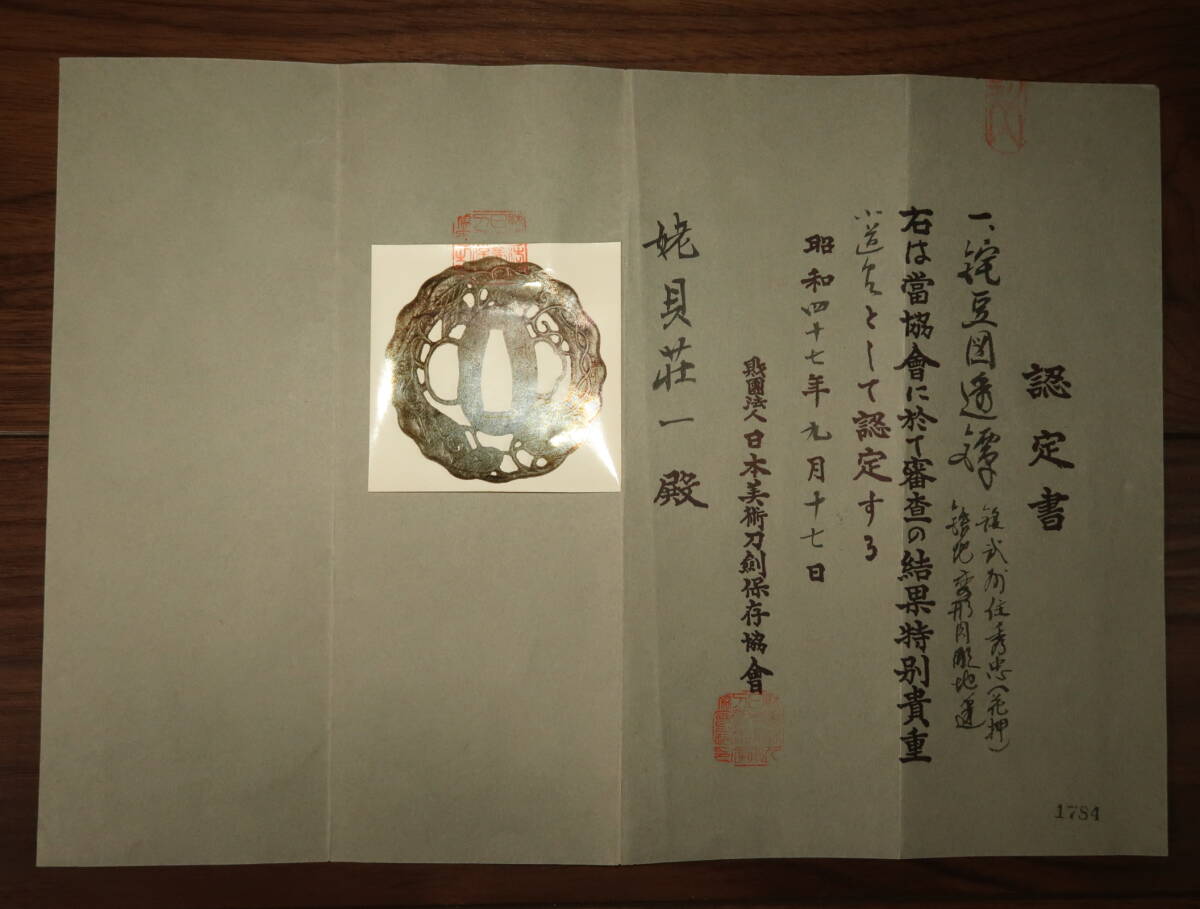 認定書
一、鉈豆図透鐔 銘 武州住秀忠(花押)
鉄地変形肉彫地透
右は當協會に於て審査の結果特別貴重
小道具として認定する
昭和四十七年九月十七日
財團法人日本美術刀劍保存協會
姥貝荘一殿
1784